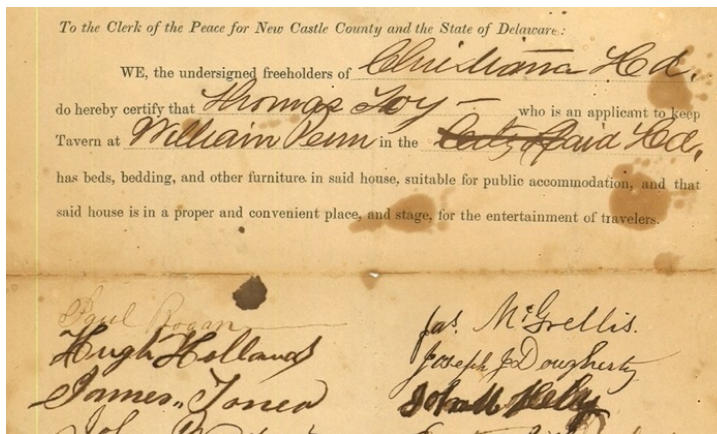 To the Clerk of the Peace for New Castle County and the State of Delaware:
WE, the undersigned freeholders of Christiana Hd.
do hereby certify that Thomas Toy — who is an applicant to keep
Tavern at William Penn in the said Hd.
has beds, bedding, and other furniture in said house, suitable for public accommodation, and that
said house is in a proper and convenient place, and stage, for the entertainment of travelers.
Paul Rogan
Jas. McGrellis.
Hugh Holland
Joseph J Dougherty
James Jones
John